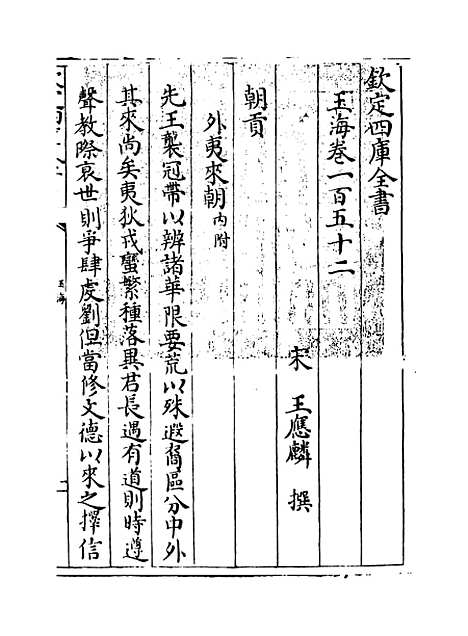 欽定四庫全書
玉海卷一百五十二
宋 王應麟 撰
朝貢
外夷來朝內附
先王襲冠帶以辨諸華限要荒以殊遐裔區分中外
其來尚矣夷狄戎蠻繁種落異君長遇有道則時遵
聲教際衰世則爭肆虔劉但當修文德以來之擇信
玉海